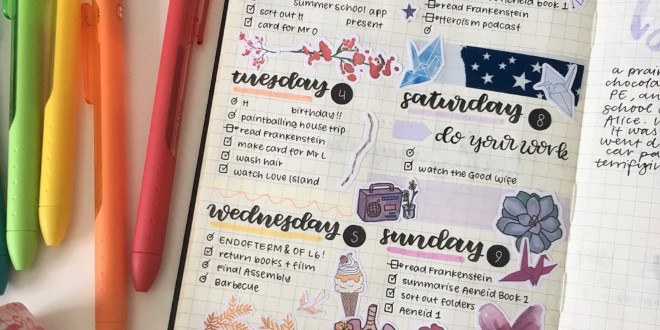 summer school app
sort out H present
card for Mr O
tuesday 4
H birthday!!
paintballing house trip
read Frankenstein
make card for Mr L
wash hair
watch Love Island
wednesday 5
END OF TERM & OF L6!
return books + film
Final Assembly
Barbecue
Aeneid book 1
read Frankenstein
Heroism podcast
saturday 8
do your work
watch the Good Wife
sunday 9
read Frankenstein
summarise Aeneid Book 2
sort out folders
Aeneid 1
a prair
chocola
PE, an
school
Alice.
it was
went d
car po
terrifyin